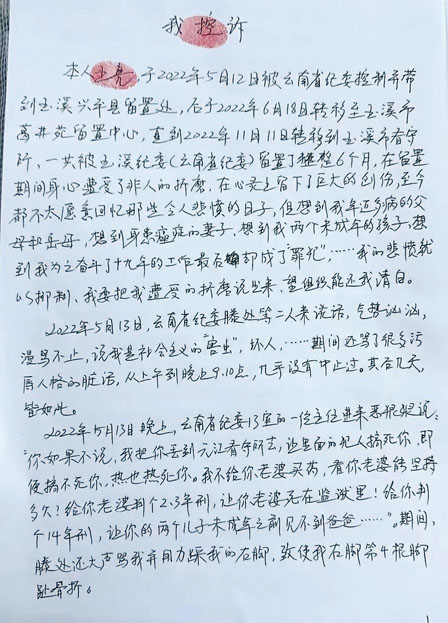 我控诉
本人王亮于2022年5月12日被云南省纪委控制并带
到玉溪兴平县留置处,后于2022年6月18日转移至玉溪市
高井苑留置中心,直到2022年11月11日转移到玉溪市看守
所、一共被玉溪纪委(云南省纪委)留置了整整6个月,在留置
期间身心遭受了非人的折磨,在心灵上留下了巨大的创伤,至今
都不太愿意回忆那些令人悲愤的日子,但想到我年迈多病的父
母和岳母,想到身患癌症的妻子,想到我两个未成年的孩子,想
到我为之奋斗了十九年的工作最后却成了"罪犯",……我的悲愤犹
抑制、我要把我遭受的折磨说出来,望组织能还我清白。
2022年5月13日,云南省纪委滕处等二人来谈话,气势汹汹,
漫骂不止,说我是社会主义的"害虫",坏人,……期间还骂了很多污
辱人格的脏话,从上午到晚上9.10点,几乎没有中止过。其后几天,
皆如此。
2022年5月13日晚上,云南省纪委13室的一位主任进来恶狠狠说:
"你如果不说,我把你丢到元江看守所去,让里面的犯人搞死你,即
便搞不死你,热也热死你。我不给你老婆买药,看你老婆能坚持
多久!给你老婆判个2.3年刑,让你老婆死在监狱里!给你判
个14年刑,让你的两个儿子未成年之前见不到爸爸……"。期间,
滕处还大声骂我并用力踩我的右脚,致使我右脚第4根脚
趾骨折。
1